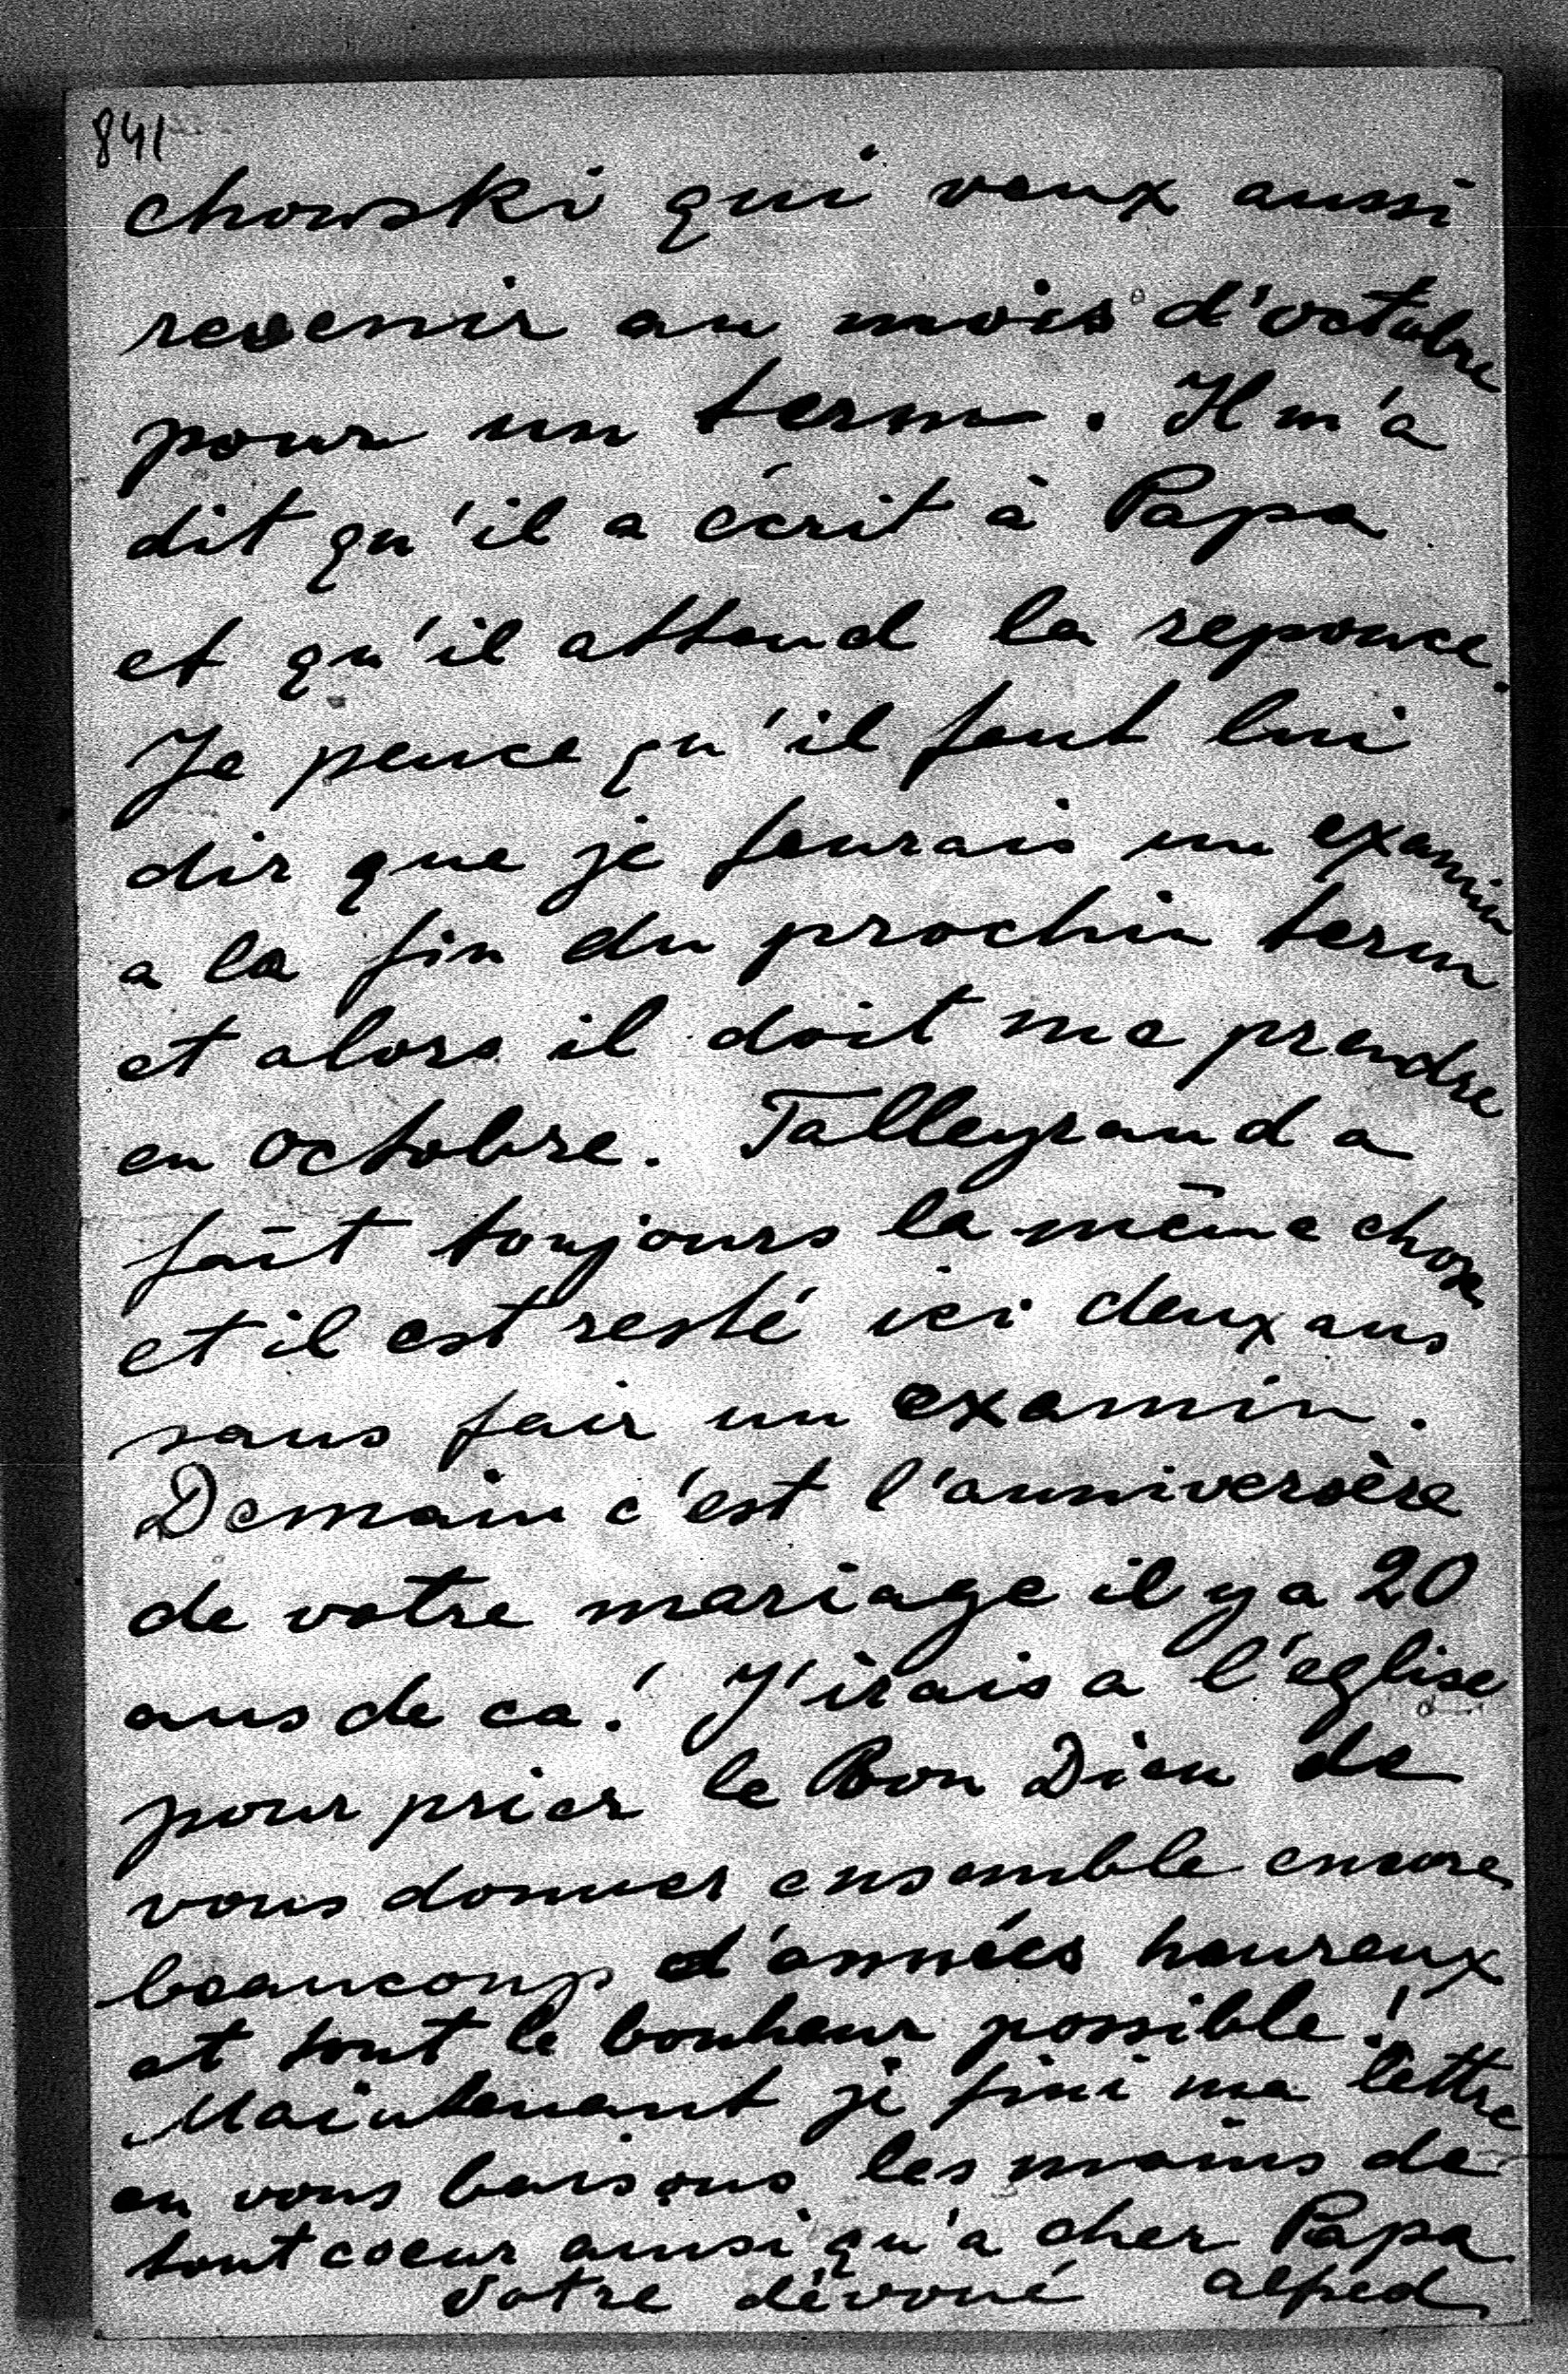 841
chowski qui veux aussi
revenir au mois d'octobre
pour un term. Il m'a
dit qu'il a écrit à Papa
et qu'il attend la reponce.
Je pence qu'il faut lui
dir que je faurais un examin
a la fin du prochin term
et alors il doit me prendre
en octobre. Talleyrand a
fait toujours la même chose
et il est resté ici deux ans
sans fair un examin.
Demain c'est l'anniversère
de votre mariage il y a 20
ans de ca! J'irais a l'eglise
pour prier le Bon Dieu de
vous donner ensemble encore
beaucoup d'années heureux
et tout le bonheur possible!
Maintenant je fini ma lettre
en vous baisons les mains de
tout coeur ainsi qu'a cher Papa
votre dévoué alfred